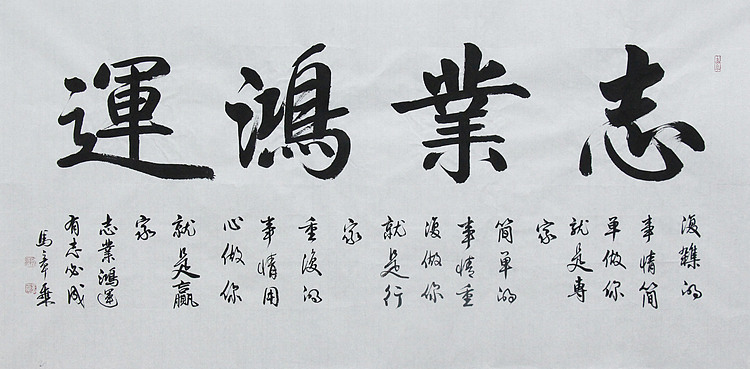 志業鴻運
復雜的
事情簡
單做你
就是專
家
簡單的
事情重
復做你
就是行
家
重復的
事情用
心做你
就是贏
家
志業鴻運
有志必成
馬